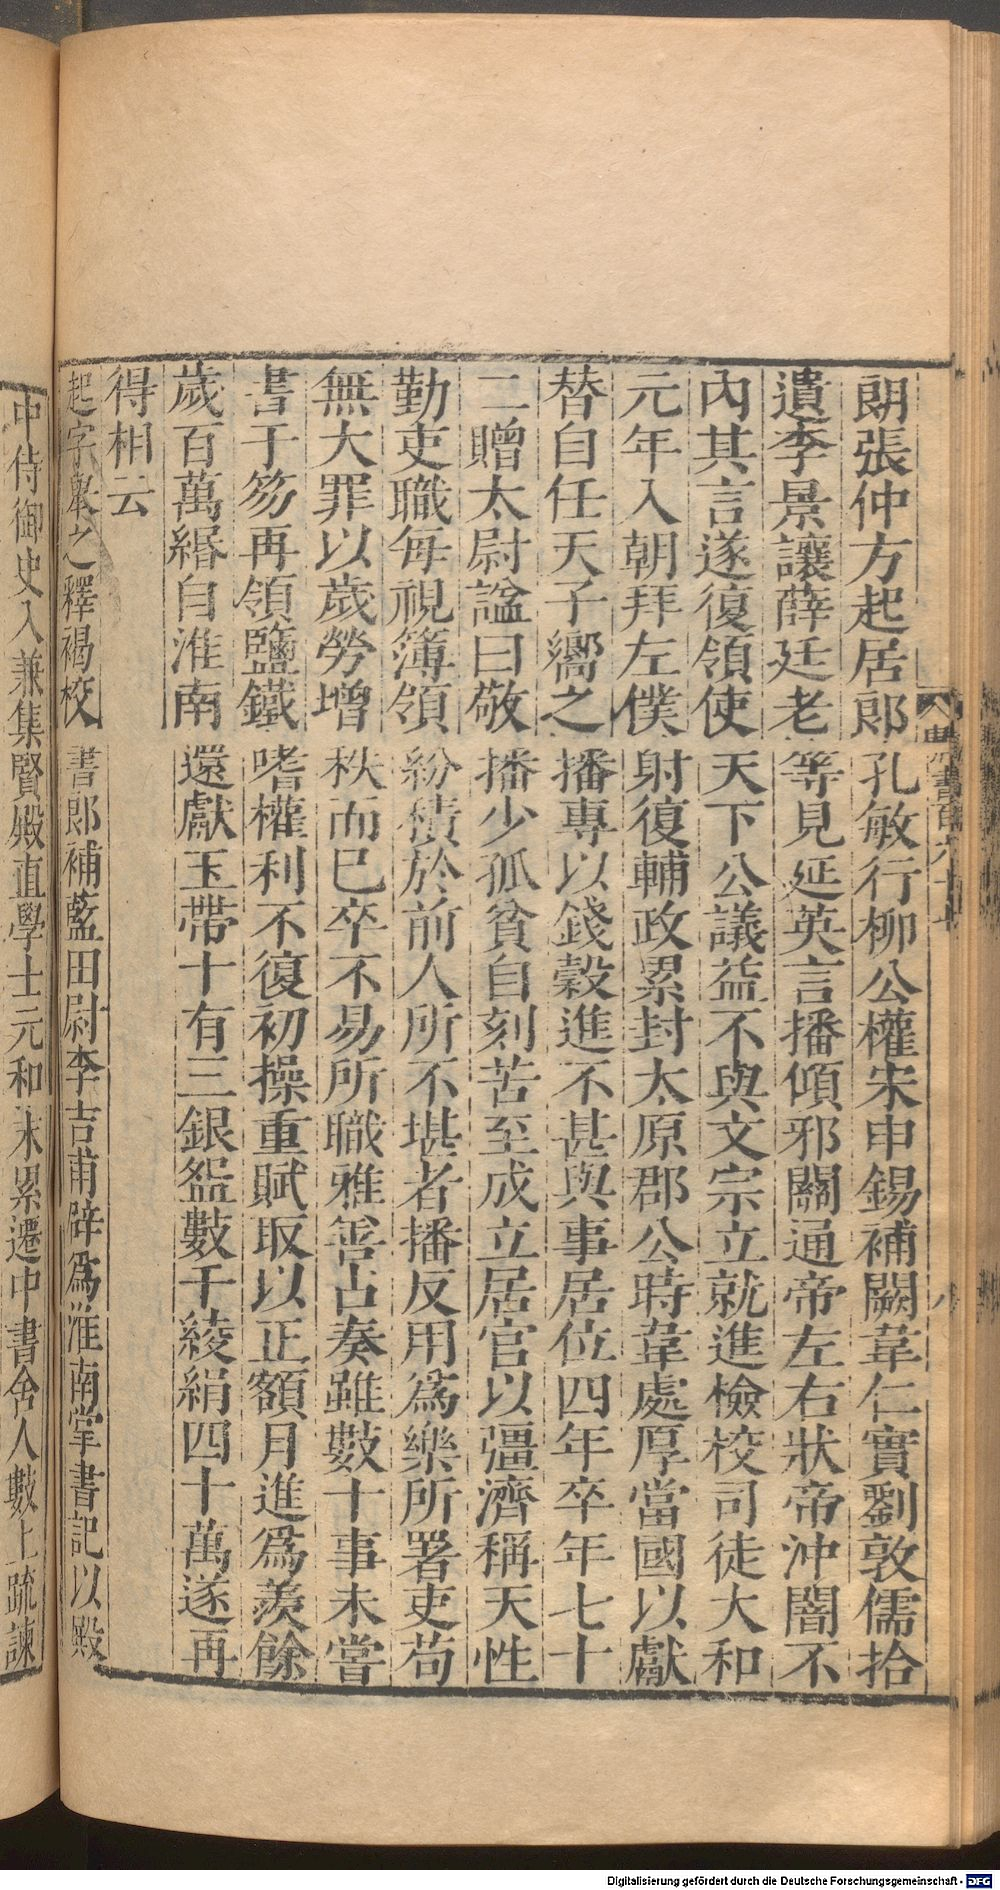 唐書百六十七
八
朗張仲方起居郎孔敏行柳公權宋申錫補闕韋仁實劉敦儒拾
遺李景讓薛廷老等見延英言播傾邪關通帝左右狀帝沖闇不
內其言遂復領使天下公議益不與文宗立就進檢校司徒大和
元年入朝拜左僕射復輔政累封太原郡公時韋處厚當國以獻
替自任天子嚮之播專以錢穀進不甚與事居位四年卒年七十
二贈太尉諡曰敬播少孤貧自刻苦至成立居官以彊濟稱天性
勤吏職每視簿領紛積於前人所不堪者播反用爲樂所署吏苟
無大罪以歲勞增秩而已卒不易所職雅善占奏雖數十事未嘗
書于笏再領鹽鐵嗜權利不復初操重賦取以正額月進爲羨餘
歲百萬緡自淮南還獻玉帶十有三銀盌數千綾絹四十萬遂再
得相云
起字舉之釋褐校書郎補藍田尉李吉甫辟爲淮南掌書記以殿
中侍御史入兼集賢殿直學士元和末累遷中書舍人數上疏諫
Digitalisierung gefördert durch die Deutsche Forschungsgemeinschaft - DFG